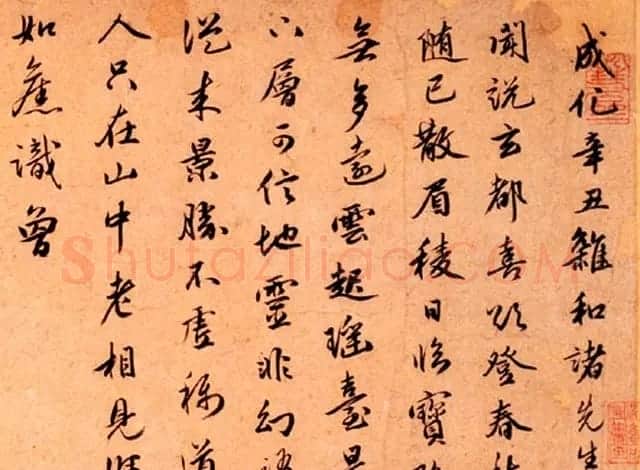 成化辛丑雜和諸先生
聞說玄都喜欲登春
隨已散眉稜日臨寶
無多遠雲起瑤臺
層可信地靈非幻
從來景勝不虛稱道
人只在山中老相見
如舊識曾
Shufaziliao.COM